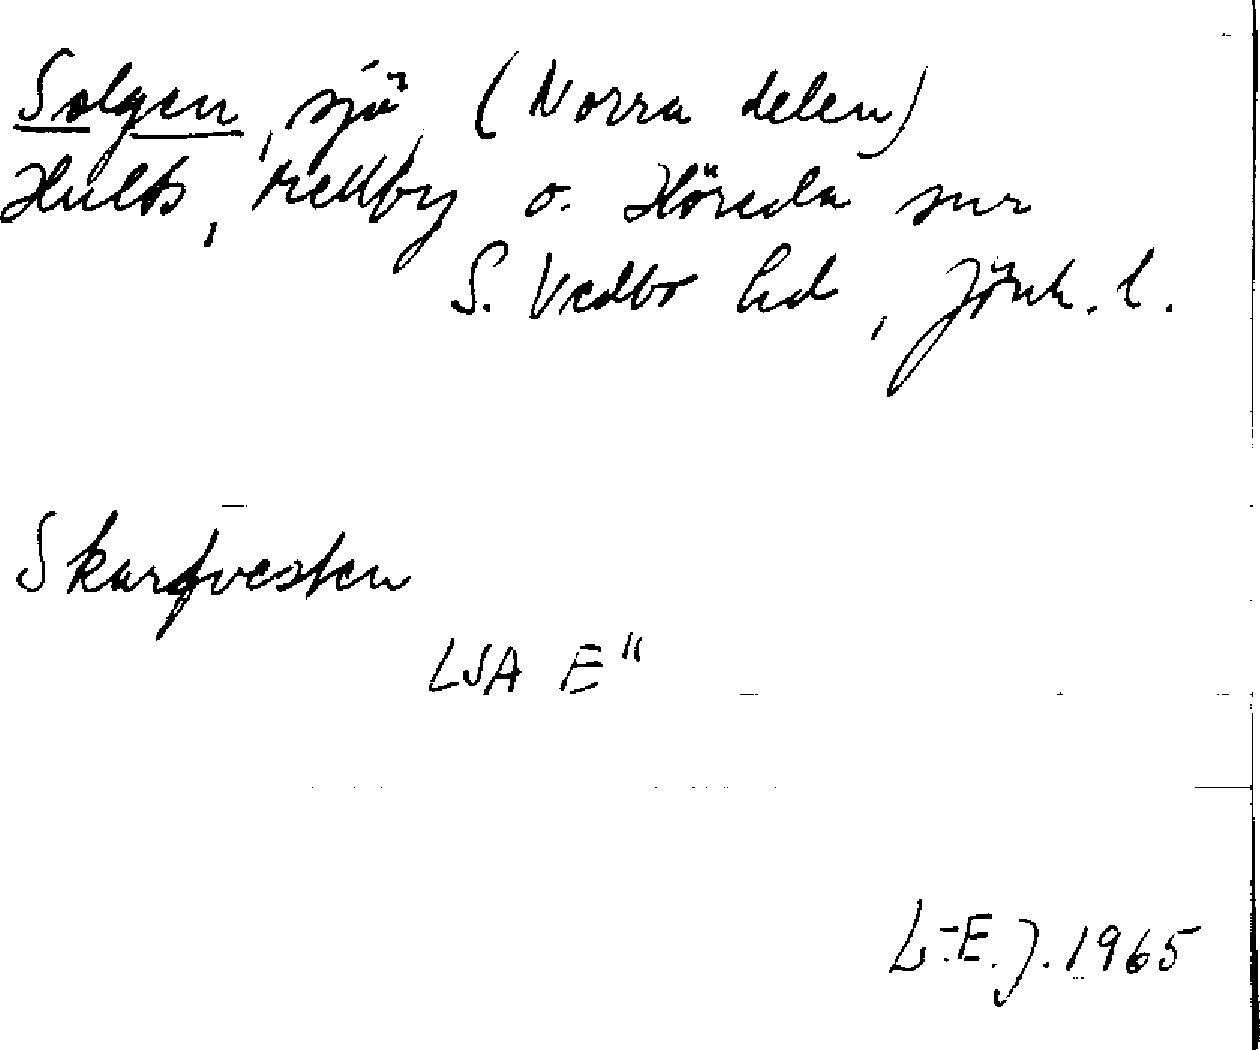 Solgen, sjö (Norra delen)
Hults, Mellby o. Höreda snr
S. Vedbo hd, Jönk. l.
Skarqvesten
LSA E"
L-E. J. 1965